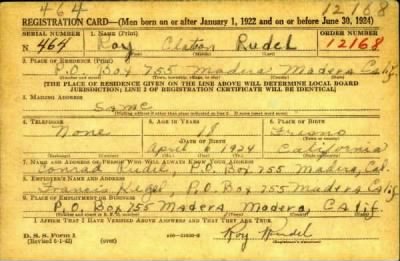 464 12168
REGISTRATION CARD—(Men born on or after January 1, 1922 and on or before June 30, 1924)
SERIAL NUMBER 1. NAME (Print) ORDER NUMBER
N 464 Roy Rudel 12168
(First) (Middle) (Last)
2. PLACE OF RESIDENCE (Print)
P.O. Box 755 Madera Madera Calif.
[THE PLACE OF RESIDENCE GIVEN ON THE LINE ABOVE WILL DETERMINE LOCAL BOARD
JURISDICTION; LINE 2 OF REGISTRATION CERTIFICATE WILL BE IDENTICAL]
3. MAILING ADDRESS
Same
4. TELEPHONE 5. AGE IN YEARS 6. PLACE OF BIRTH
None 18 Fresno
DATE OF BIRTH
April 1924 California
7. NAME AND ADDRESS OF PERSON WHO WILL ALWAYS KNOW YOUR ADDRESS
Conrad Rudel, P.O. Box 755 Madera, Cal.
8. EMPLOYER'S NAME AND ADDRESS
Francis P.O. Box 755 Madera Calif
9. PLACE OF EMPLOYMENT OR BUSINESS
P.O. Box 755 Madera Madera, Calif.
I AFFIRM THAT I HAVE VERIFIED ABOVE ANSWERS AND THAT THEY ARE TRUE.
D. S. S. Form 1
(Revised 6-1-42) (over) Roy Rudel
(Registrant's signature)